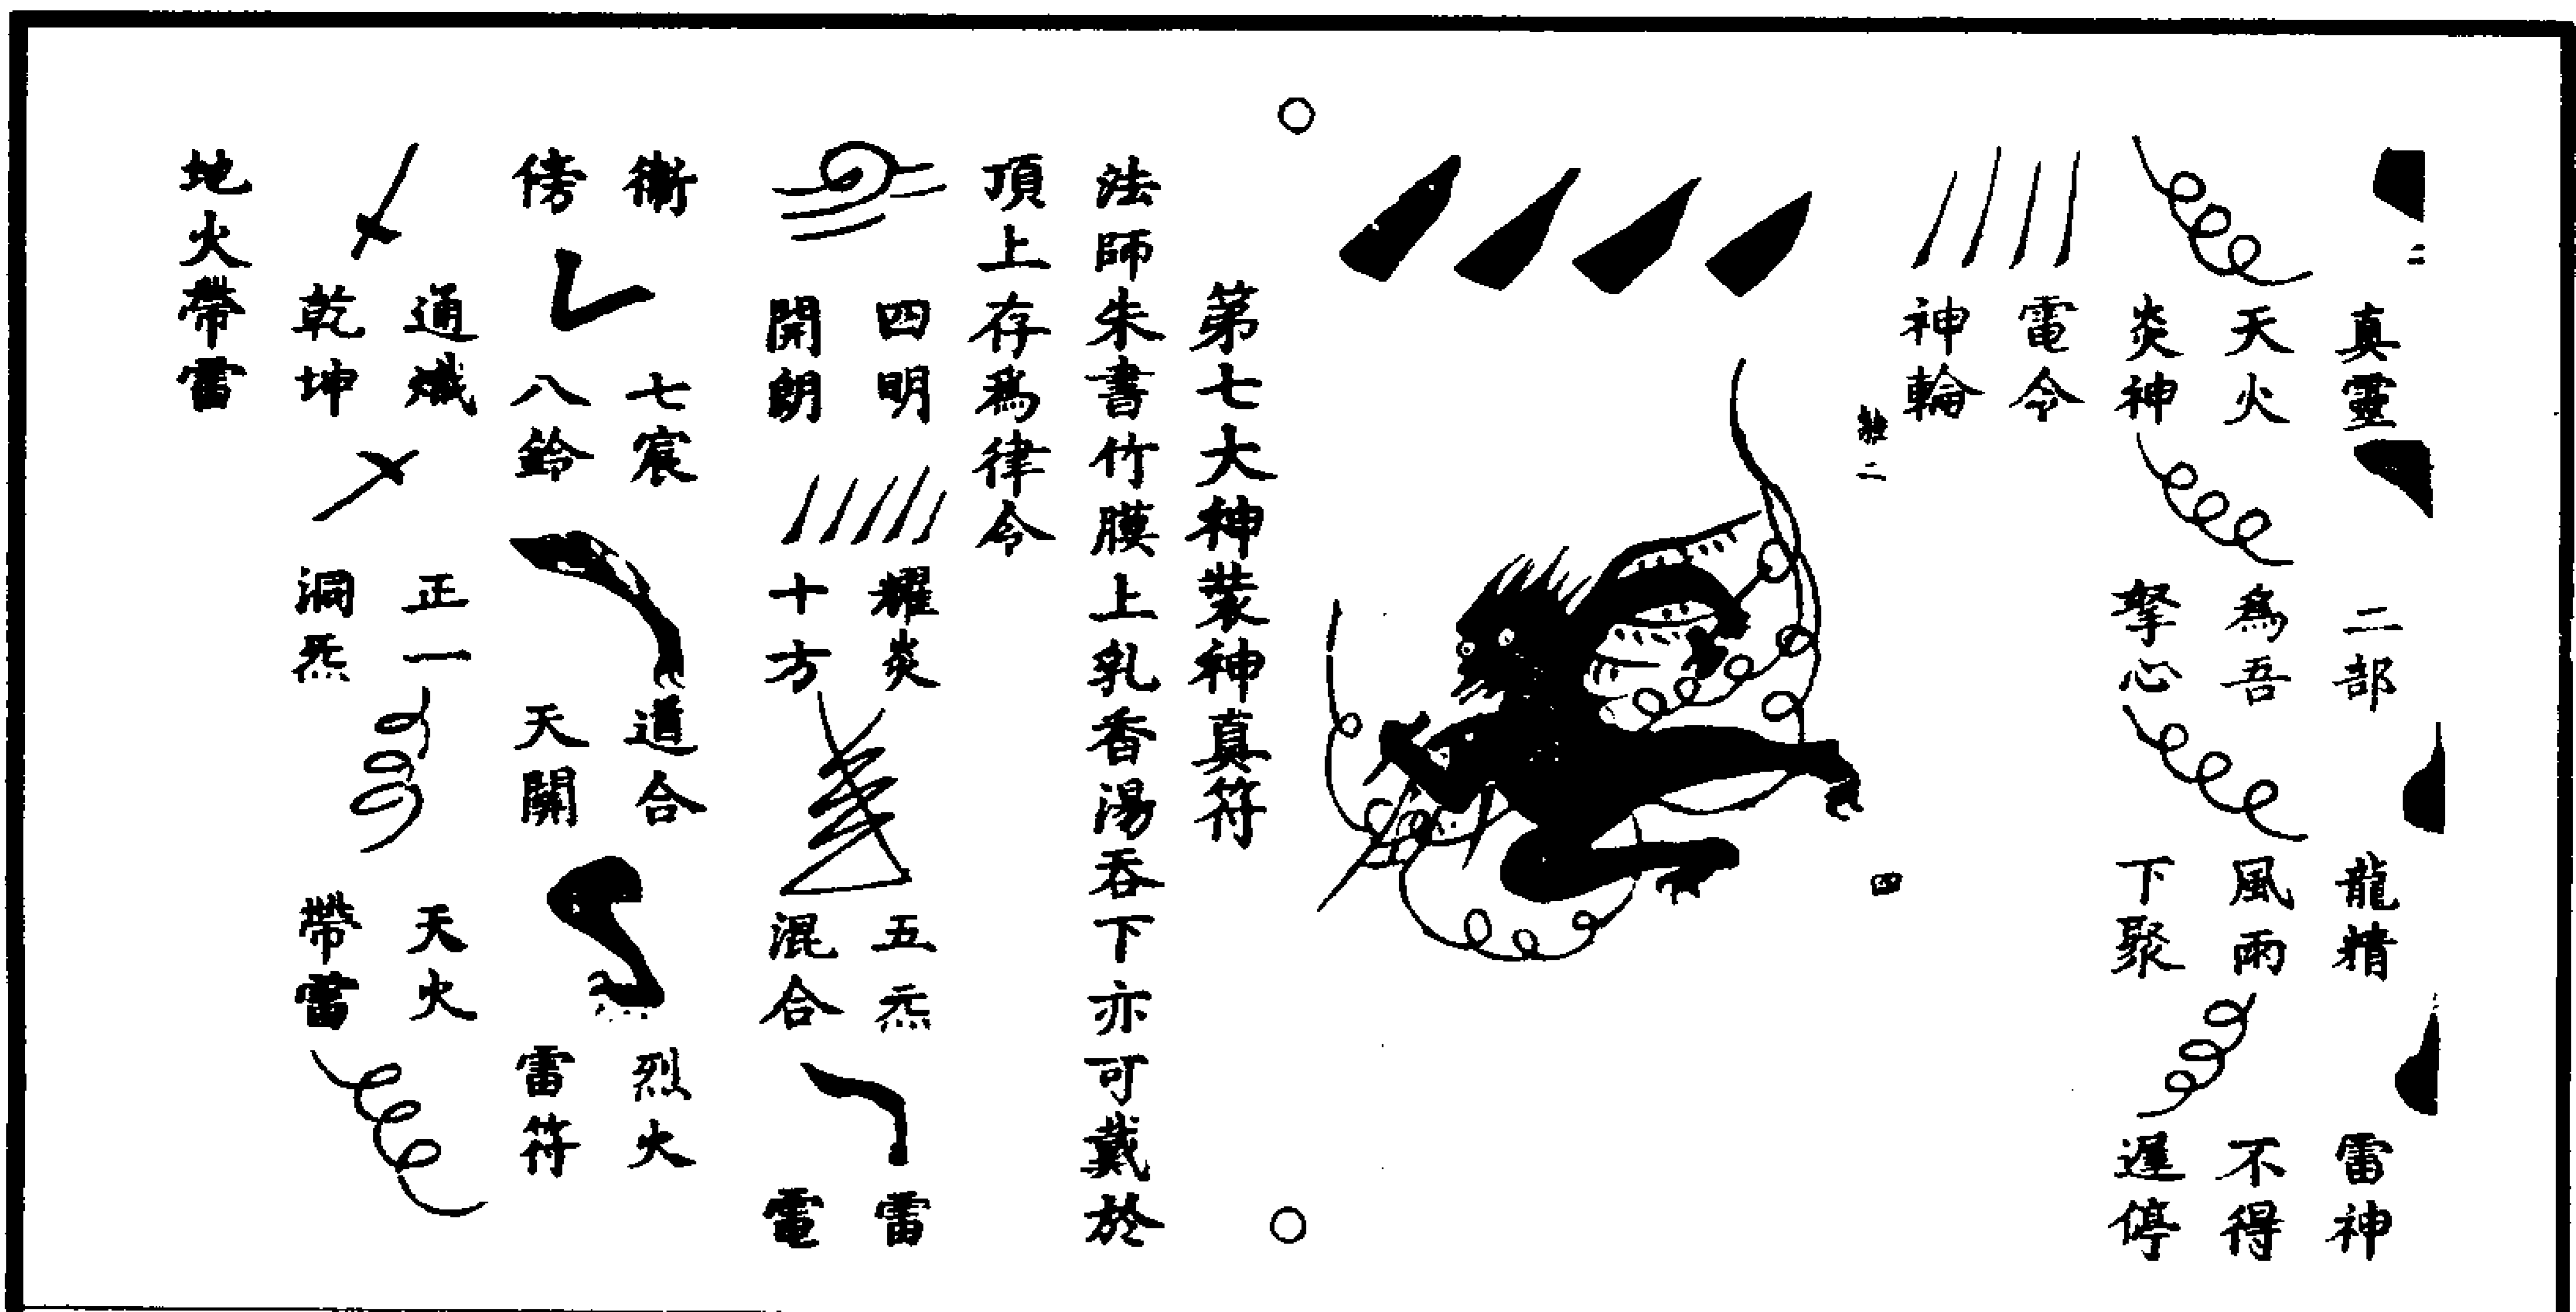 真靈 二部 龍精 雷神
天火 爲吾 風雨 不得
炎神 拏心 下聚 遲停
電令
神輪
二
四
第七大神裝神真符
法師朱書竹膜上乳香湯吞下亦可戴於
頂上存爲律令
四明 耀炎 五炁 雷
開朗 十方 混合 電
七宸 道合 烈火
傍 八鈴 天關 雷符
通熾 正一 天火
乾坤 洞炁 帶雷
地火帶雷